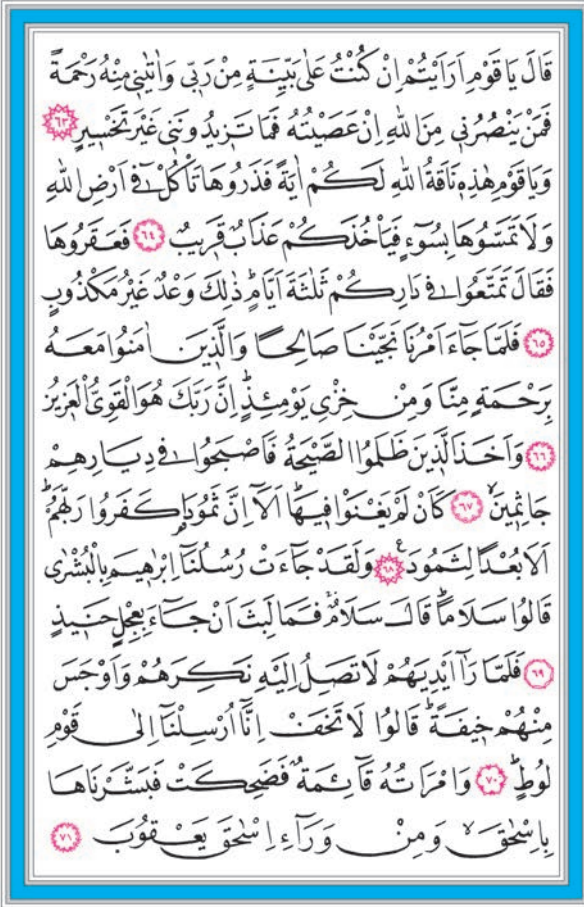 قَالَ يَا قَوْمِ اَرَاَيْتُمْ اِنْ كُنْتُ عَلٰى بَيِّنَةٍ مِنْ رَبّ۪ي وَاٰتٰين۪ي مِنْهُ رَحْمَةً
فَمَنْ يَنْصُرُن۪ي مِنَ اللّٰهِ اِنْ عَصَيْتُهُ فَمَا تَز۪يدُونَن۪ي غَيْرَ تَخْس۪يرٍ ﴿٦٣﴾
وَيَا قَوْمِ هٰذِه۪ نَاقَةُ اللّٰهِ لَكُمْ اٰيَةً فَذَرُوهَا تَأْكُلْ ف۪ٓي اَرْضِ اللّٰهِ
وَلَا تَمَسُّوهَا بِسُٓوءٍ فَيَأْخُذَكُمْ عَذَابٌ قَر۪يبٌ ﴿٦٤﴾ فَعَقَرُوهَا
فَقَالَ تَمَتَّعُوا ف۪ي دَارِكُمْ ثَلٰثَةَ اَيَّامٍۜ ذٰلِكَ وَعْدٌ غَيْرُ مَكْذُوبٍ
﴿٦٥﴾ فَلَمَّا جَٓاءَ اَمْرُنَا نَجَّيْنَا صَالِحًا وَالَّذ۪ينَ اٰمَنُوا مَعَهُ
بِرَحْمَةٍ مِنَّا وَمِنْ خِزْيِ يَوْمِئِذٍۜ اِنَّ رَبَّكَ هُوَ الْقَوِيُّ الْعَز۪يزُ
﴿٦٦﴾ وَاَخَذَ الَّذ۪ينَ ظَلَمُوا الصَّيْحَةُ فَاَصْبَحُوا ف۪ي دِيَارِهِمْ
جَاثِم۪ينَۙ ﴿٦٧﴾ كَاَنْ لَمْ يَغْنَوْا ف۪يهَاۜ اَلَٓا اِنَّ ثَمُودَا۬ كَفَرُوا رَبَّهُمْۜ
اَلَا بُعْدًا لِثَمُودَ۟ ﴿٦٨﴾ وَلَقَدْ جَٓاءَتْ رُسُلُنَٓا اِبْرٰه۪يمَ بِالْبُشْرٰى
قَالُوا سَلَامًاۜ قَالَ سَلَامٌ فَمَا لَبِثَ اَنْ جَٓاءَ بِعِجْلٍ حَن۪يذٍ
﴿٦٩﴾ فَلَمَّا رَآٰ اَيْدِيَهُمْ لَا تَصِلُ اِلَيْهِ نَكِرَهُمْ وَاَوْجَسَ
مِنْهُمْ خ۪يفَةًۜ قَالُوا لَا تَخَفْ اِنَّٓا اُرْسِلْنَٓا اِلٰى قَوْمِ
لُوطٍۜ ﴿٧٠﴾ وَامْرَاَتُهُ قَٓائِمَةٌ فَضَحِكَتْ فَبَشَّرْنَاهَا
بِاِسْحٰقَۙ وَمِنْ وَرَٓاءِ اِسْحٰقَ يَعْقُوبَ ﴿٧١﴾